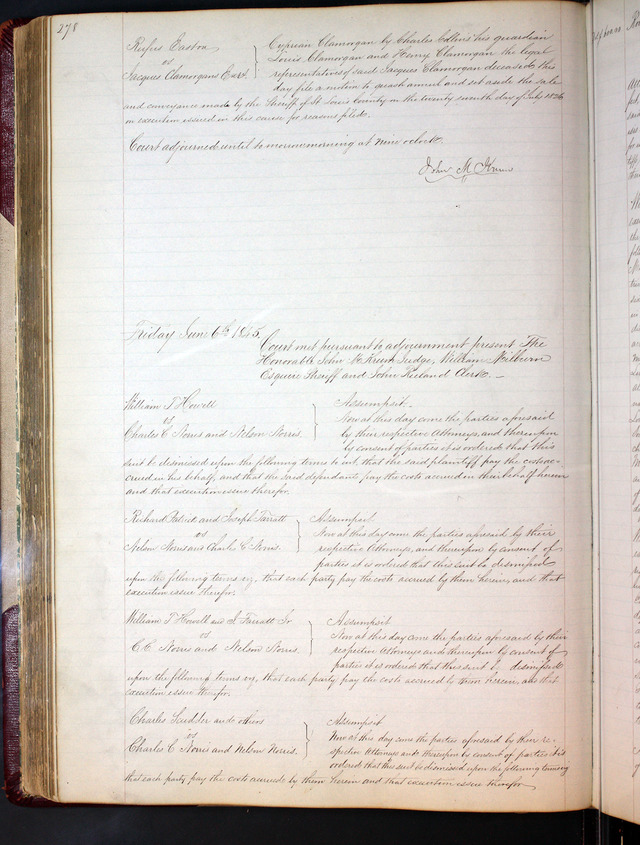 278
Rufus Easton } Cyprian Clamorgan by Charles Collins his guardian
vs Louis Clamorgan and Henry Clamorgan the legal
Jacques Clamorgans Exr. representatives of said Jacques Clamorgan deceased this
day file a motion to quash annul and set aside the sale
and conveyance made by the Sheriff of St Louis County on the twenty seventh day of July
on execution issued in this cause for reasons filed.
Court adjourned until tomorrow morning at nine oclock.
John M Krum
Friday June 6th 1845.
Court met pursuant to adjournment present The
Honorable John M Krum Judge, William Milburn
Esquire Sheriff and John Ruland Clerk. —
William T Howell } Assumpsit. —
vs Now at this day come the parties aforesaid
Charles C Norris and Nelson Norris by their respective Attorneys, and thereupon
by consent of parties it is ordered that this
suit be dismissed upon the following terms to wit, that the said plaintiff pay the costs ac-
crued in his behalf, and that the said defendants pay the costs accrued in their behalf herein
and that execution issue therefor.
Richard Patrick and Joseph Tarratt } Assumpsit.
vs Now at this day come the parties aforesaid by their
Nelson Norris and Charles C Norris. respective Attorneys, and thereupon by consent of
parties it is ordered that this suit be dismissed
upon the following terms viz, that each party pay the costs accrued by them herein, and that
execution issue therefor.
William T Howell and J. Tarratt Jr } Assumpsit
vs Now at this day come the parties aforesaid by their
C C Norris and Nelson Norris. respective Attorneys and thereupon by consent of
parties it is ordered that this suit be dismissed
upon the following terms viz, that each party pay the costs accrued by them herein, and that
execution issue therefor.
Charles Scudder and others } Assumpsit
vs Now at this day come the parties aforesaid by their re-
Charles C Norris and Nelson Norris. spective Attorneys and thereupon by consent of parties it is
ordered that this suit be dismissed upon the following terms viz
that each party pay the costs accrued by them herein and that execution issue therefor